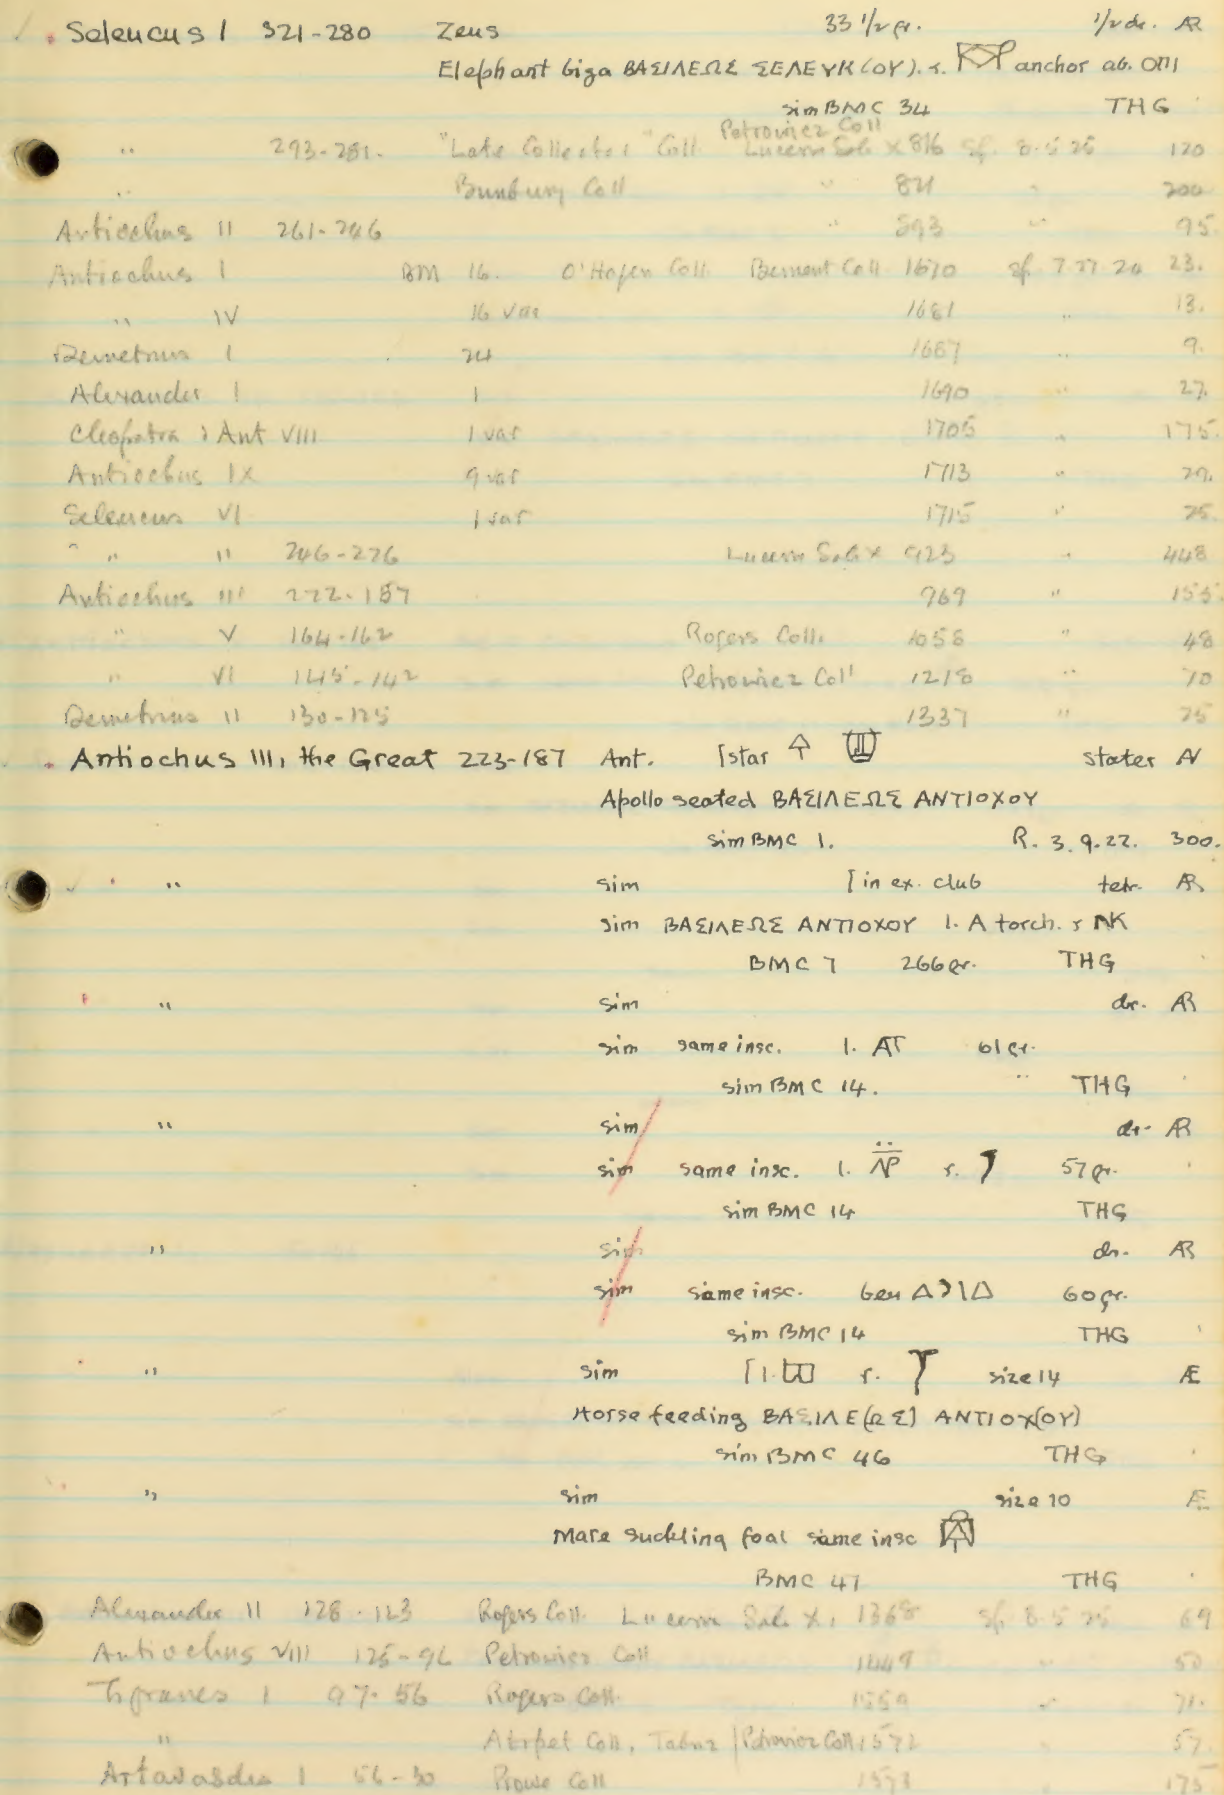 Seleucus I 321-280 Zeus 33 1/2 gr. 1/2 dr. AR
Elephant biga ΒΑΣΙΛΕΩΣ ΣΕΛΕΥΚ(ΟΥ). r. anchor ab.
sim BMC 34 THG
" 293-281. "Late Collector" Coll Petrowicz Coll Lucern Sale X 816 Sf. 8.5.25 120
" Bunbury Coll " 821 " 200
Antiochus II 261-246 " 893 " 95.
Antiochus I BM 16. O'Hagen Coll. Bement Coll 1670 Sf. 7.27.24 23.
" IV 16 var 1681 " 13.
Demetrius I 24 1687 " 9.
Alexander I 1 1690 " 27.
Cleopatra & Ant VIII 1 var 1705 " 175.
Antiochus IX 9 var 1713 " 29.
Seleucus VI 1 var 1715 " 25.
" II 246-226 Lucern Sale X 923 " 448
Antiochus III 222-187 969 " 155.
" V 164-162 Rogers Coll. 1058 " 48
" VI 145-142 Petrowicz Coll 1218 " 70
Demetrius II 130-125 1337 " 25
Antiochus III, the Great 223-187 Ant. [star stater N
Apollo seated ΒΑΣΙΛΕΩΣ ΑΝΤΙΟΧΟΥ
sim BMC 1. R. 3.9.22. 300.
" sim [in ex. club tetr. AR
sim ΒΑΣΙΛΕΩΣ ΑΝΤΙΟΧΟΥ l. A torch. r
BMC 7 266 gr. THG
" sim dr. AR
sim same insc. l. 61 gr.
sim BMC 14. " THG
" sim dr. AR
sim same insc. l. r. 57 gr.
sim BMC 14 THG
" sim dr. AR
sim same insc. 60 gr.
sim BMC 14 THG
" sim [l. r. size 14 Æ
Horse feeding ΒΑΣΙΛΕ(ΩΣ] ΑΝΤΙΟΧ(ΟΥ)
sim BMC 46 THG
" sim size 10 Æ
Mare suckling foal same insc
BMC 47 THG
Alexander II 128-123 Rogers Coll. Lucern Sale X, 1368 Sf. 8.5.25 69
Antiochus VIII 125-96 Petrowicz Coll 1449 " 50
Tigranes I 97-56 Rogers Coll. 1559 " 71.
" Atrpet Coll, Tabriz | Petrowicz Coll 1572 " 57.
Artavasdes I 56-30 Prowe Coll 1573 " 175